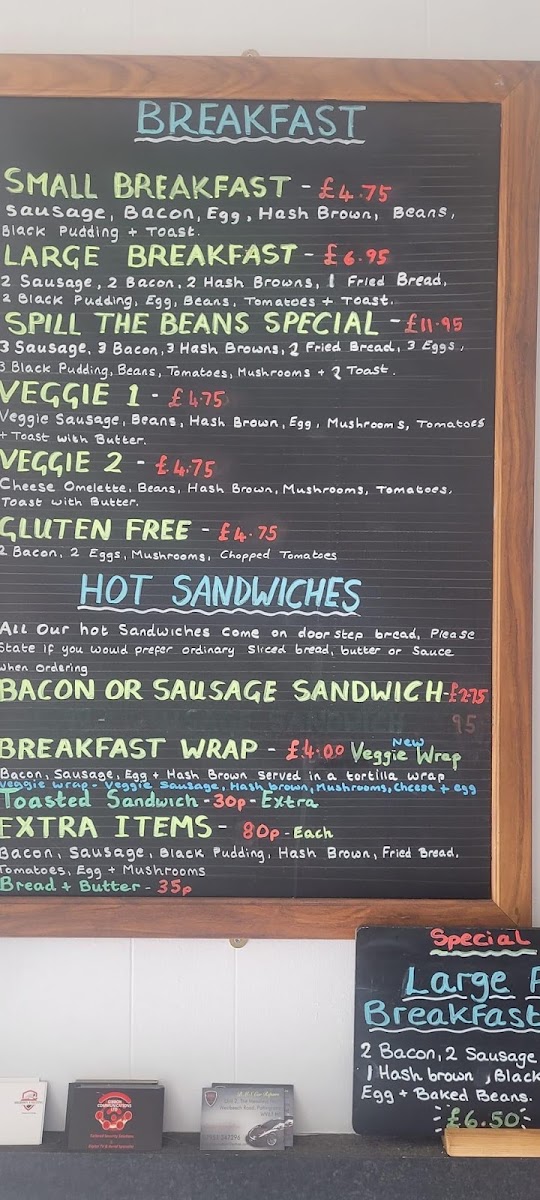 BREAKFAST
SMALL BREAKFAST - £4.75
Sausage, Bacon, Egg, Hash Brown, Beans,
Black Pudding + Toast.
LARGE BREAKFAST - £6.95
2 Sausage, 2 Bacon, 2 Hash Browns, 1 Fried Bread,
2 Black Pudding, Egg, Beans, Tomatoes + Toast.
SPILL THE BEANS SPECIAL - £11.95
3 Sausage, 3 Bacon, 3 Hash Browns, 2 Fried Bread, 3 Eggs,
3 Black Pudding, Beans, Tomatoes, Mushrooms + 2 Toast.
VEGGIE 1 - £4.75
Veggie Sausage, Beans, Hash Brown, Egg, Mushrooms, Tomatoes
+ Toast with Butter.
VEGGIE 2 - £4.75
Cheese Omelette, Beans, Hash Brown, Mushrooms, Tomatoes,
Toast with Butter.
GLUTEN FREE - £4.75
2 Bacon, 2 Eggs, Mushrooms, Chopped Tomatoes
HOT SANDWICHES
All Our hot Sandwiches Come on door step bread, Please
State if you would prefer ordinary Sliced bread, butter or Sauce
when ordering
BACON OR SAUSAGE SANDWICH - £2.75
SANDWICH 95
BREAKFAST WRAP - £4.00 New Veggie Wrap
Bacon, Sausage, Egg + Hash Brown Served in a tortilla wrap
Veggie wrap - Veggie Sausage, Hash brown, Mushrooms, Cheese + egg
Toasted Sandwich - 30p - Extra
EXTRA ITEMS - 80p - Each
Bacon, Sausage, Black Pudding, Hash Brown, Fried Bread,
Tomatoes, Egg + Mushrooms
Bread + Butter - 35p
Special
Large
Breakfast
2 Bacon, 2 Sausage
1 Hash brown, Black
Egg + Baked Beans.
£6.50
COMMUNICATIONS
LTD